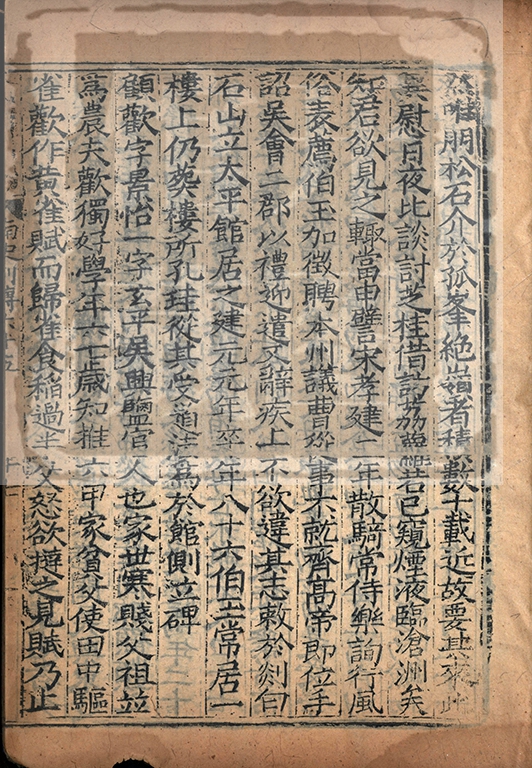 然唯朋松石介於孤峯絶嶺者積數十載近故要其來此
兾慰日夜比談討芝桂借訪荔蘿若已窺煙液臨滄洲矣
知君欲見之輙當申譬宋孝建二年散騎常侍樂詢行風
俗表薦伯玉加徵聘本州議曹從事不就齊髙帝即位手
詔吳會二郡以禮迎遣又辭疾上不欲違其志敕於剡白
石山立太平館居之建元元年卒年八十六伯玉常居一
樓上仍葬樓所孔珪從其受道法爲於館側立碑
顧歡字景怡一字玄平吳興鹽官人也家世寒賤父祖並
爲農夫歡獨好學年六七歲知推六甲家貧父使田中驅
雀歡作黃雀賦而歸雀食稻過半父怒欲撻之見賦乃止